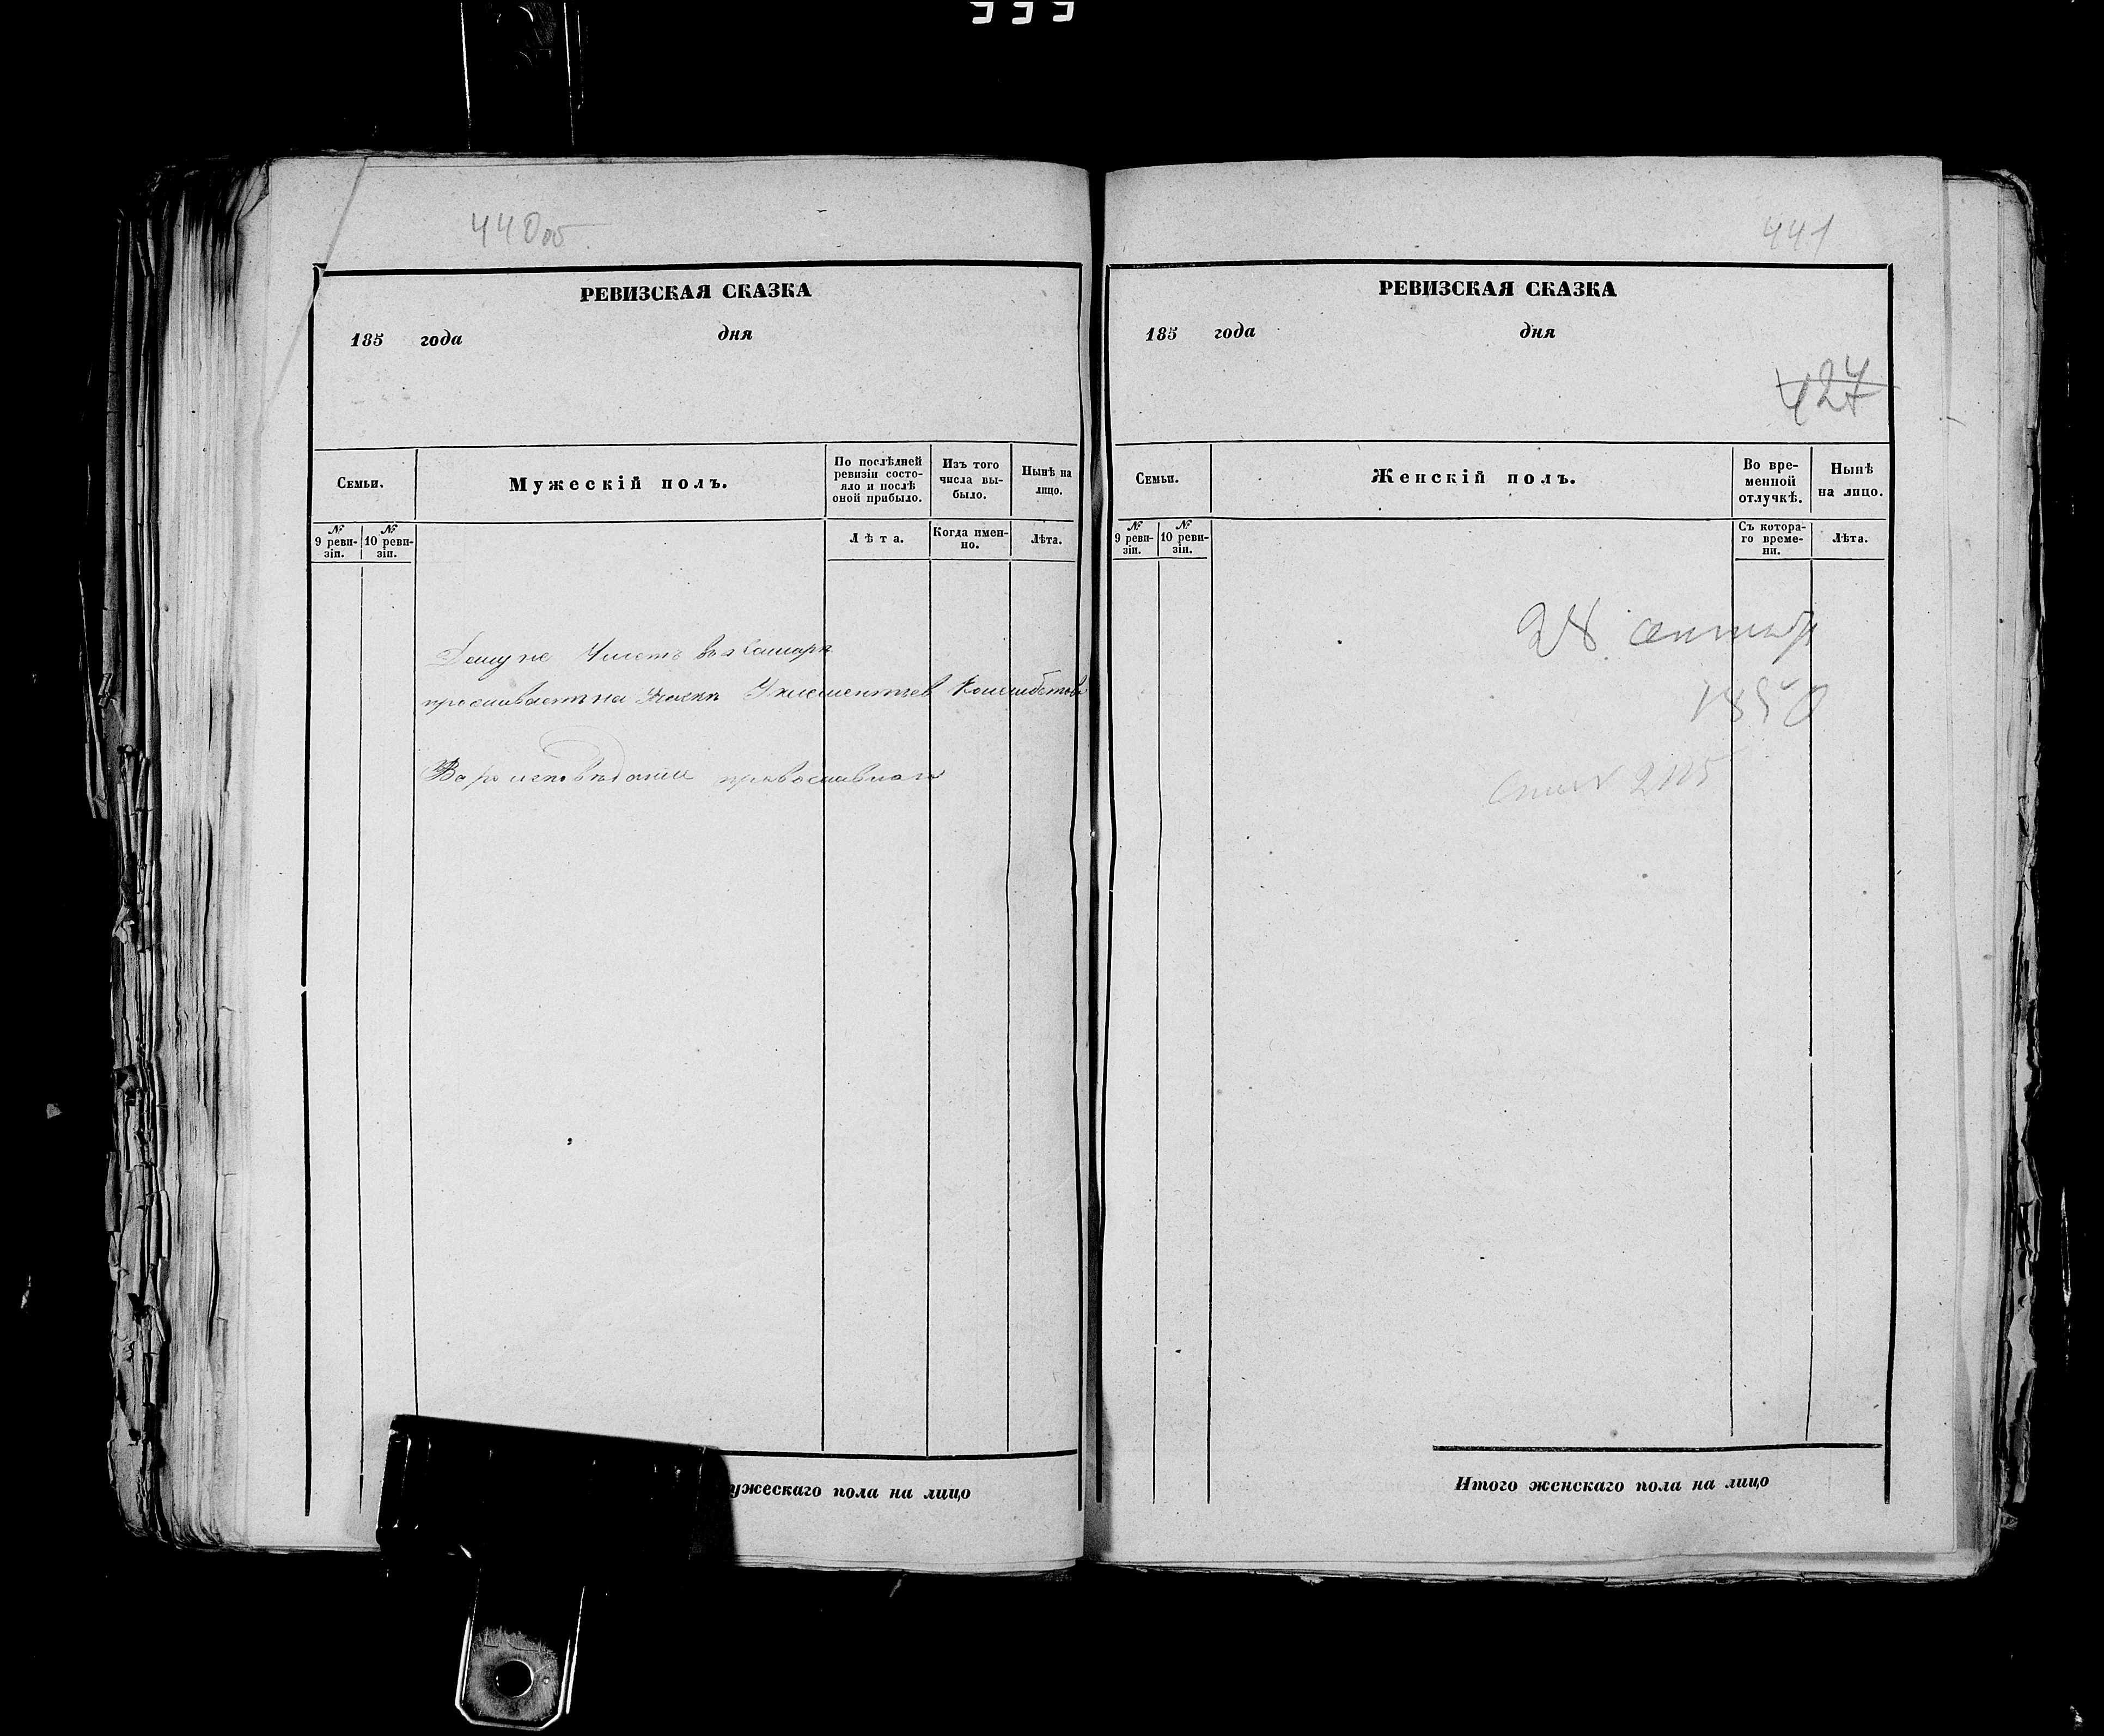 440об.
РЕВИЗСКАЯ СКАЗКА
185 года дня
Семьи.
Мужескій полъ.
По послѣдней ревизіи состо-
яло и послѣ
оной прибыло.
Изъ того
числа вы-
было.
Нынѣ на
лицо.
№
9 реви-
зіи.
№
10 реви-
зіи.
Лѣта.
Когда имен-
но.
Лѣта.
проживаетъ на
Вероисповѣданія православнаго
ужескаго пола на лицо
441
РЕВИЗСКАЯ СКАЗКА
185 года дня
427
Семьи.
Женскій полъ.
Во вре-
менной
отлучкѣ.
Нынѣ
на лицо.
№
9 реви-
зіи.
№
10 реви-
зіи.
Съ котора-
го време-
ни.
Лѣта.
28
1850
Итого женскаго пола на лицо